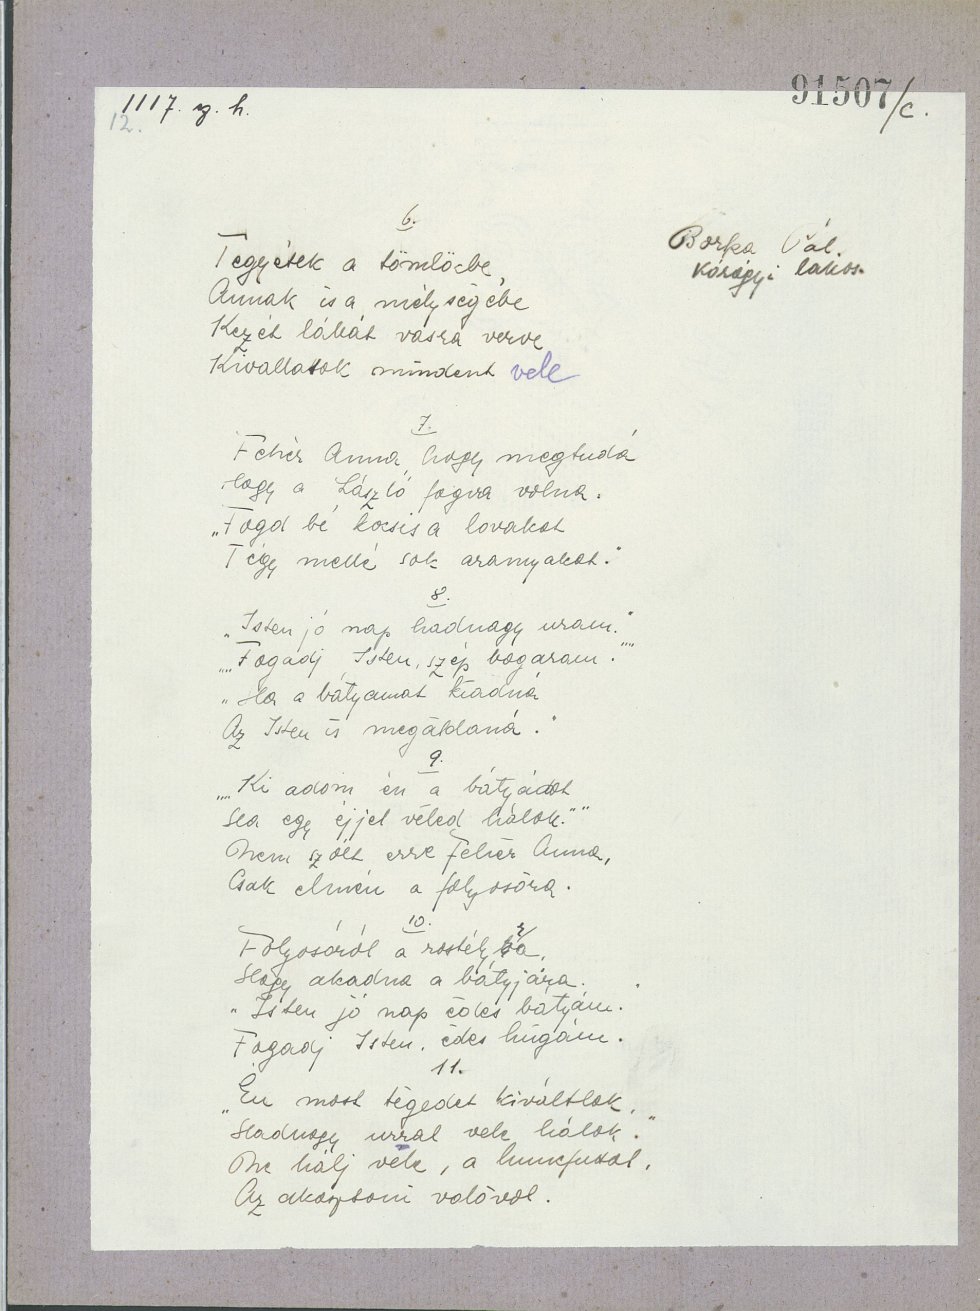 91507/c.
1117. ny. h.
12.
Borka Pál.
kórógyi lakos.
6.
Tegyétek a tömlöcbe,
Annak is a mélységébe
Kezét lábát vasra verve
Kivallatok mindent vele
7.
Fehér Anna, hogy megtudá
Hogy a László fogva volna.
„Fogd bé kocsis a lovakat
Tégy mellé sok aranyakat."
8.
„Isten jó nap hadnagy uram."
„„Fogadj Isten, szép bogaram.""
„Ha a bátyámat kiadná
Az Isten is megáldaná."
9.
„„Ki adom én a bátyádat
Ha egy éjjel véled hálok.""
Nem szólt erre Fehér Anna,
Csak elmén a folyosóra.
10.
Folyosóról a rostélyra,
Hogy akadna a bátyjára.
„Isten jó nap édes bátyám.
Fogadj Isten, édes húgám.
11.
„Én most tégedet kiváltlak,
Hadnagy urral vele hálok."
Ne hálj véle, a huncfutal,
Az akasztani valóval.